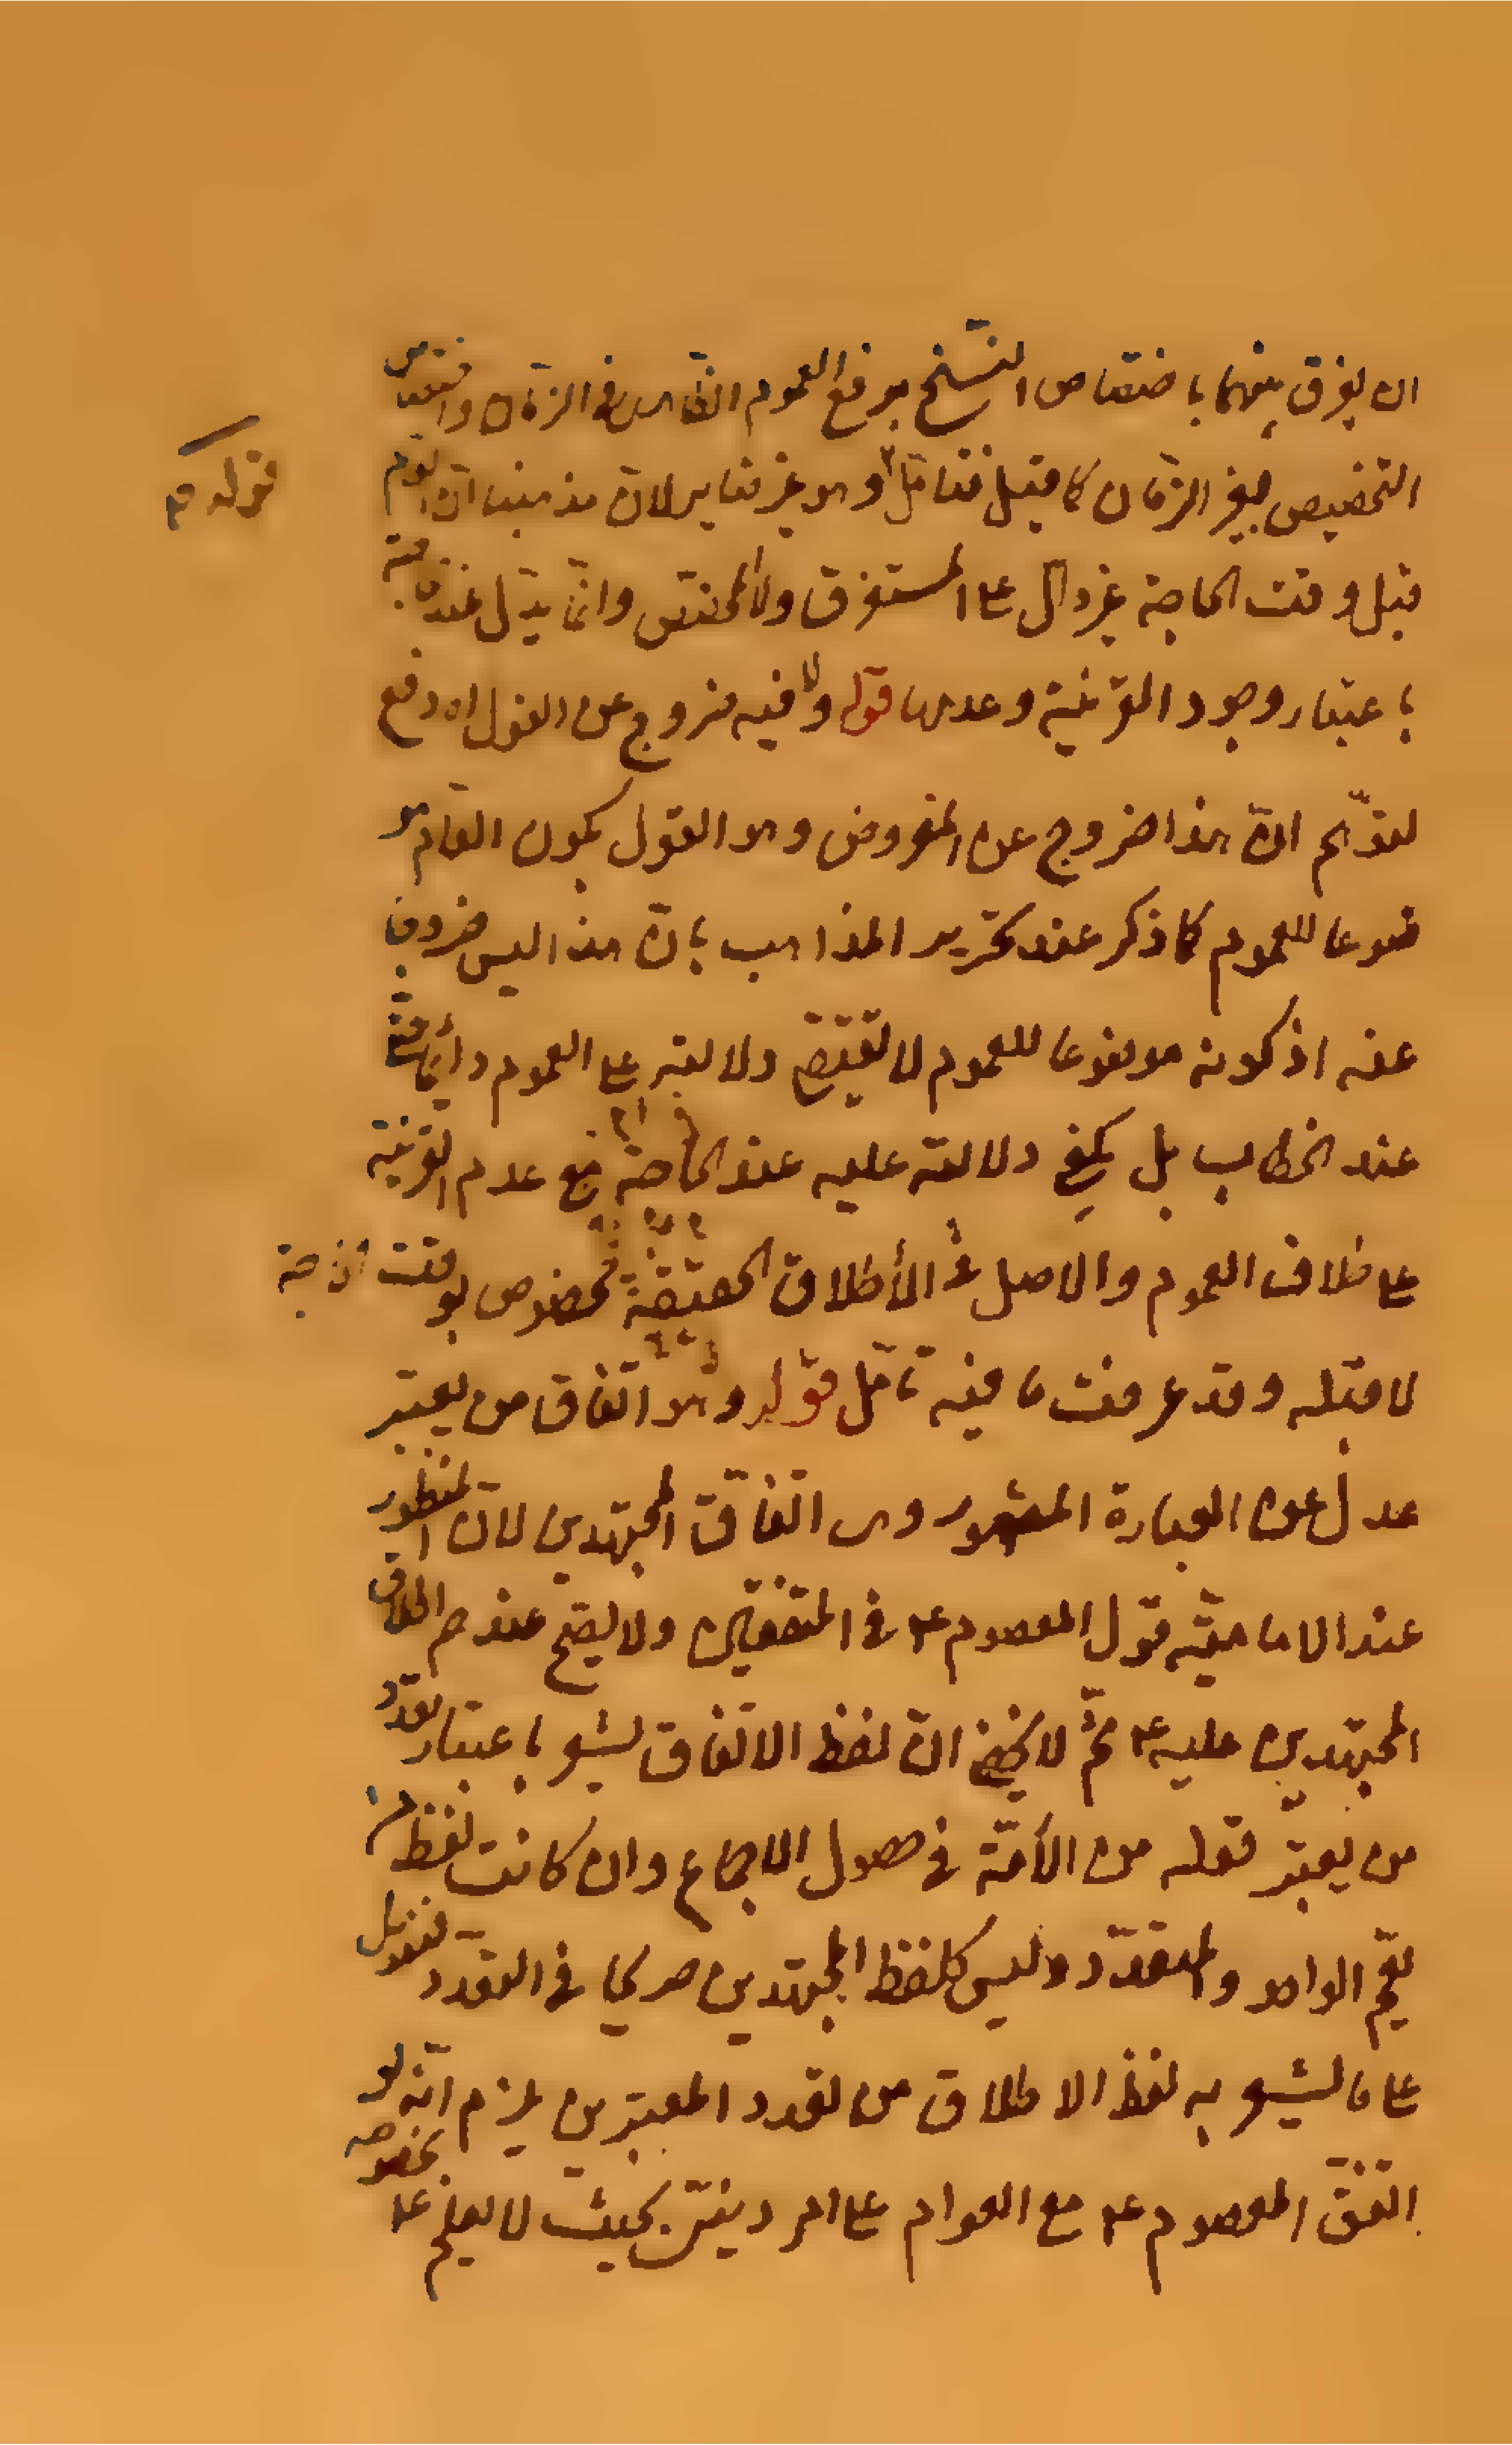 ان يفرق بينهما باختصاص النسخ برفع العموم الخاص في الزمان واختصاص
التخصيص بغير الزمان كما قيل فتأمل وهو غير مغاير لان مذهبنا ان العام
قبل وقت الحاجة غير دال على المستغرق ولا المختص وانما يدل عند الحاجة
باعتبار وجود القرينة وعدمها قوله ولا فيه خروج عن القول اه دفع
لتوهم ان هذا خروج عن المفروض وهو القول بكون العام مو
ضوعا للعموم كما ذكر عند تحرير المذاهب بان هذا ليس خروجا
عنه اذ كونه موضوعا للعموم لا تقتضي دلالته على العموم دائما حتى
عند الخطاب بل يكفي دلالته عليه عند الحاجة مع عدم القرينة
على خلاف العموم والاصل في الأطلاق الحقيقة مخصوص بوقت الحاجة
لا قبله وقد عرفت ما فيه تأمل قوله وهو اتفاق من يعتبر
عدل عن العبارة المشهور وهى اتفاق المجتهدين لان المنظور
عند الامامية قول المعصوم ع في المتفقين ولا يصح عندهم اطلاق
المجتهدين عليه ع ثم لا يخفى ان لفظ الاتفاق يشعر باعتبار تعدد
من يعتبر قوله من الأمة في حصول الاجماع وان كانت لفظ من
يعم الواحد والمتعدد وليس كلفظ المجتهدين صريحا في التعدد فنقول
على ما يشعر به لفظ الاطلاق من تعدد المعتبرين يلزم انه لو
اتفق المعصوم ع مع العوام على امر دينى بحيث لا يعلم ع بخصوصه